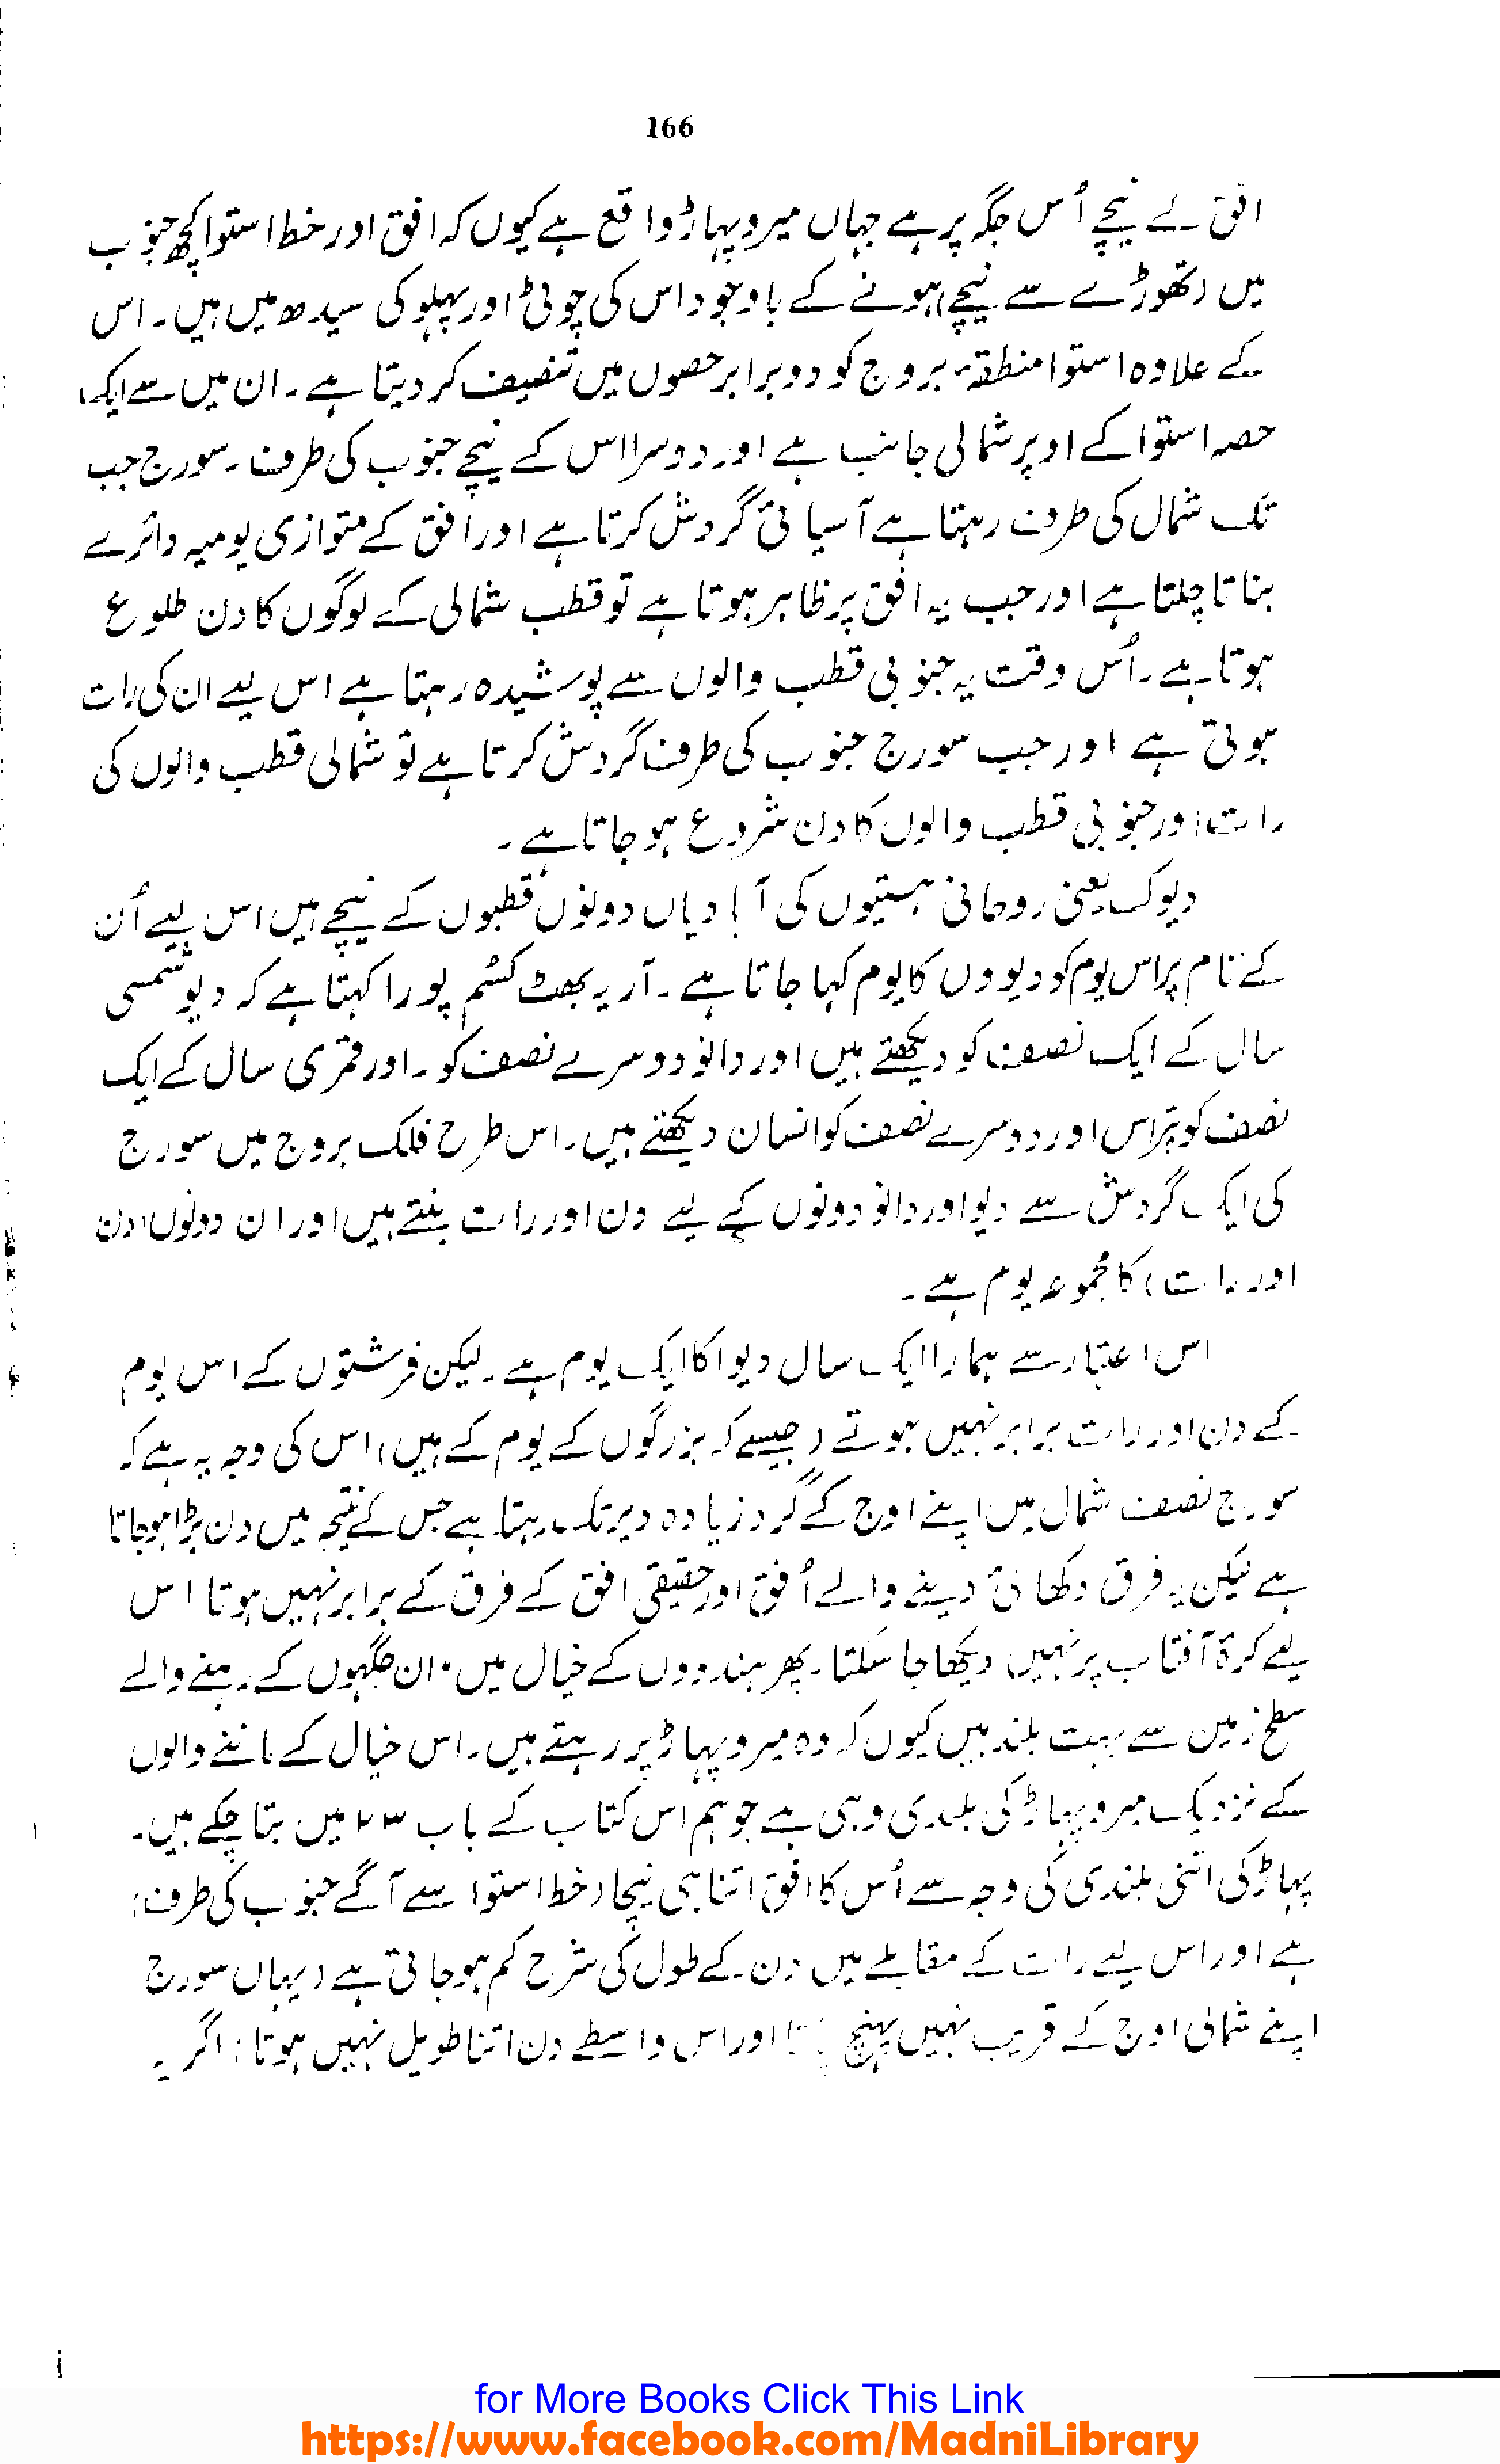 166
افق کے نیچے اُس جگہ پر ہے جہاں میرو پہاڑ واقع ہے کیوں کہ افق اور خط استوا کچھ جنوب
میں (تھوڑے سے نیچے) ہونے کے باوجود اس کی چوٹی اور پہلو کی سیدھ میں ہیں۔ اس
کے علاوہ استوا منطقۂ بروج کو دو برابر حصوں میں تنصیف کر دیتا ہے۔ ان میں سے ایک
حصہ استوا کے اوپر شمالی جانب ہے اور دوسرا اس کے نیچے جنوب کی طرف۔ سورج جب
تک شمال کی طرف رہتا ہے آسیائی گردش کرتا ہے اور افق کے متوازی یومیہ دائرے
بناتا چلتا ہے اور جب یہ افق پر ظاہر ہوتا ہے تو قطب شمالی کے لوگوں کا دن طلوع
ہوتا ہے۔ اُس وقت یہ جنوبی قطب والوں سے پوشیدہ رہتا ہے اس لیے ان کی رات
ہوتی ہے اور جب سورج جنوب کی طرف گردش کرتا ہے تو شمالی قطب والوں کی
رات اور جنوبی قطب والوں کا دن شروع ہو جاتا ہے۔
دیوک یعنی روحانی ہستیوں کی آبادیاں دونوں قطبوں کے نیچے ہیں اس لیے اُن
کے نام پر اس یوم کو دیووں کا یوم کہا جاتا ہے۔ آریہ بھٹ کسم پورا کہتا ہے کہ دیو شمسی
سال کے ایک نصف کو دیکھتے ہیں اور دانو دوسرے نصف کو۔ اور قمری سال کے ایک
نصف کو پتراس اور دوسرے نصف کو انسان دیکھتے ہیں۔ اس طرح فلک بروج میں سورج
کی ایک گردش سے دیو اور دانو دونوں کے لیے دن اور رات بنتے ہیں اور ان دونوں (دن
اور رات) کا مجموعہ یوم ہے۔
اس اعتبار سے ہمارا ایک سال دیوا کا ایک یوم ہے۔ لیکن فرشتوں کے اس یوم
کے دن اور رات برابر نہیں ہوتے (جیسے کہ بزرگوں کے یوم کے ہیں) اس کی وجہ یہ ہے کہ
سورج نصف شمال میں اپنے اوج کے گرد زیادہ دیر تک رہتا ہے جس کے نتیجہ میں دن بڑا ہو جاتا
ہے لیکن یہ فرق دکھائی دینے والے اُفق اور حقیقی افق کے فرق کے برابر نہیں ہوتا اس
لیے کرۂ آفتاب پر نہیں دیکھا جا سکتا۔ پھر ہندوؤں کے خیال میں ان جگہوں کے رہنے والے
سطح زمین سے بہت بلند ہیں کیوں کہ وہ میرو پہاڑ پر رہتے ہیں۔ اس خیال کے ماننے والوں
کے نزدیک میرو پہاڑ کی بلندی وہی ہے جو ہم اس کتاب کے باب ۲۳ میں بتا چکے ہیں۔
پہاڑ کی اتنی بلندی کی وجہ سے اُس کا افق اتنا ہی نیچا (خط استوا سے آگے جنوب کی طرف)
ہے اور اس لیے رات کے مقابلے میں دن کے طول کی شرح کم ہو جاتی ہے (یہاں سورج
اپنے شمالی اوج کے قریب نہیں پہنچ اور اس واسطے دن اتنا طویل نہیں ہوتا) اگر یہ
for More Books Click This Link
https://www.facebook.com/MadniLibrary